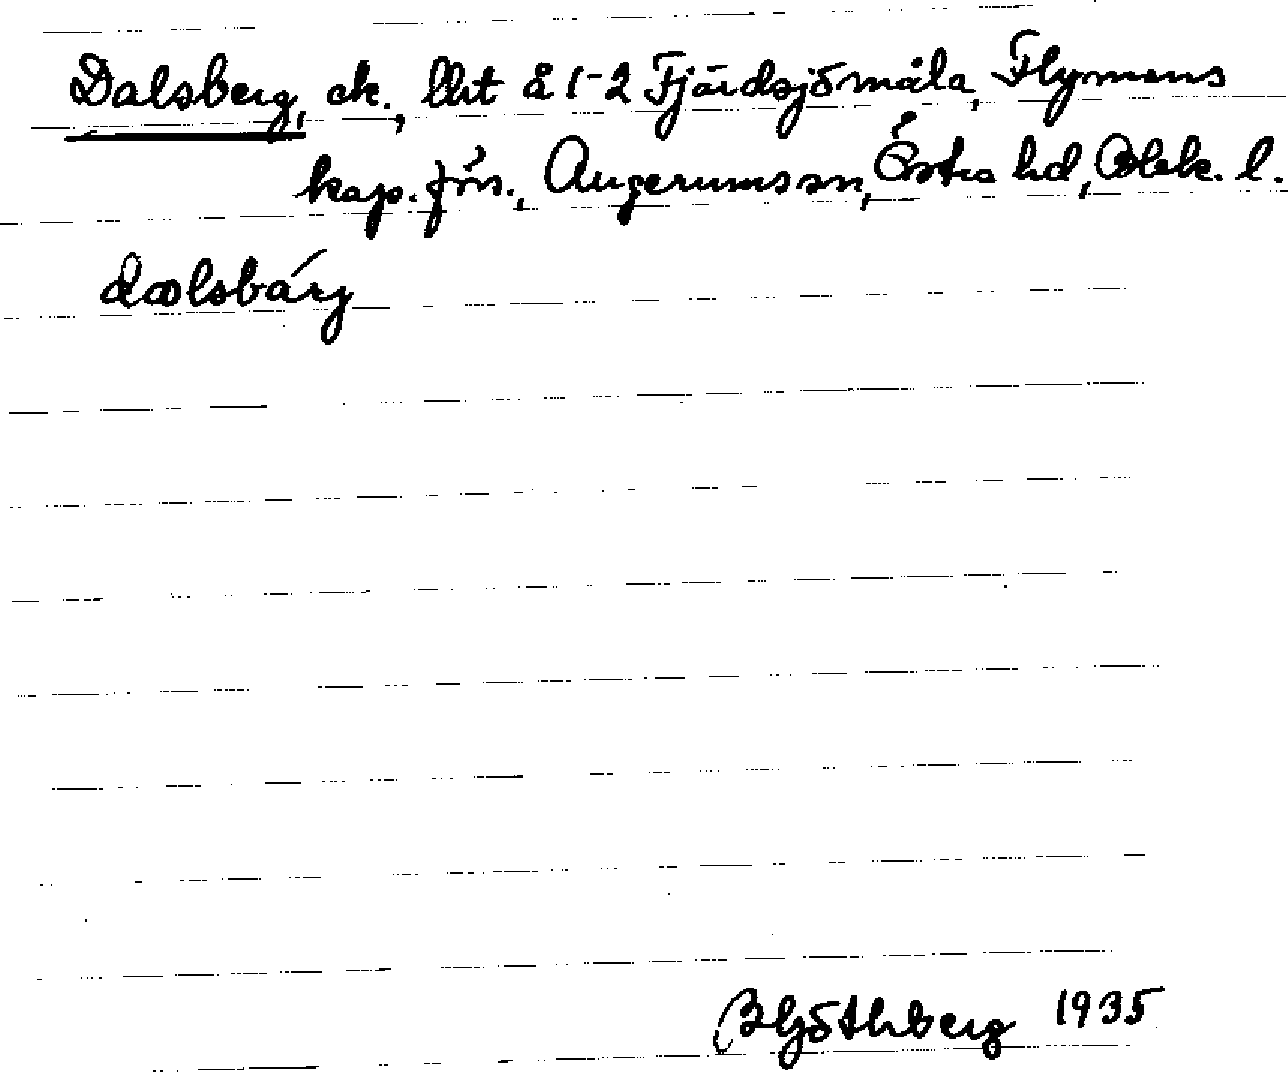 Dalsberg, ck., lht å 1-2 Fjärdsjömåla, Flymens
kap.förs., Augerums sn, Östra hd, Blek. l.
dalsbárj
B Göthberg 1935